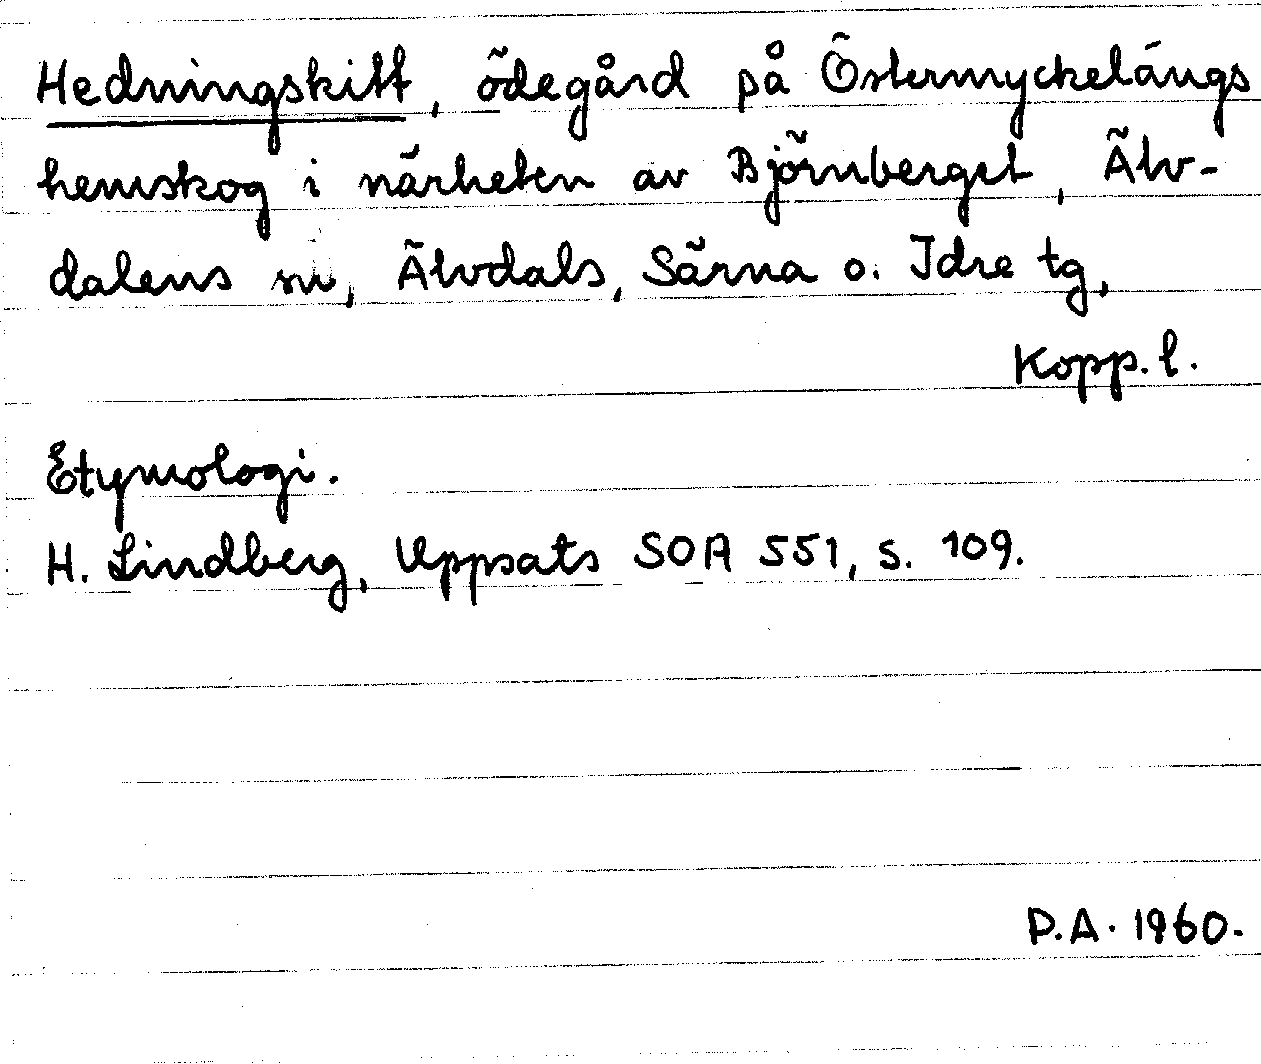 Hedningskitt, ödegård på Östermyckelängs
hemskog i närheten av Björnberget, Älv-
dalens sn, Älvdals, Särna o. Idre tg,
Kopp. l.
Etymologi.
H. Lindberg, Uppsats SOA 551, s. 109.
P.A. 1960.